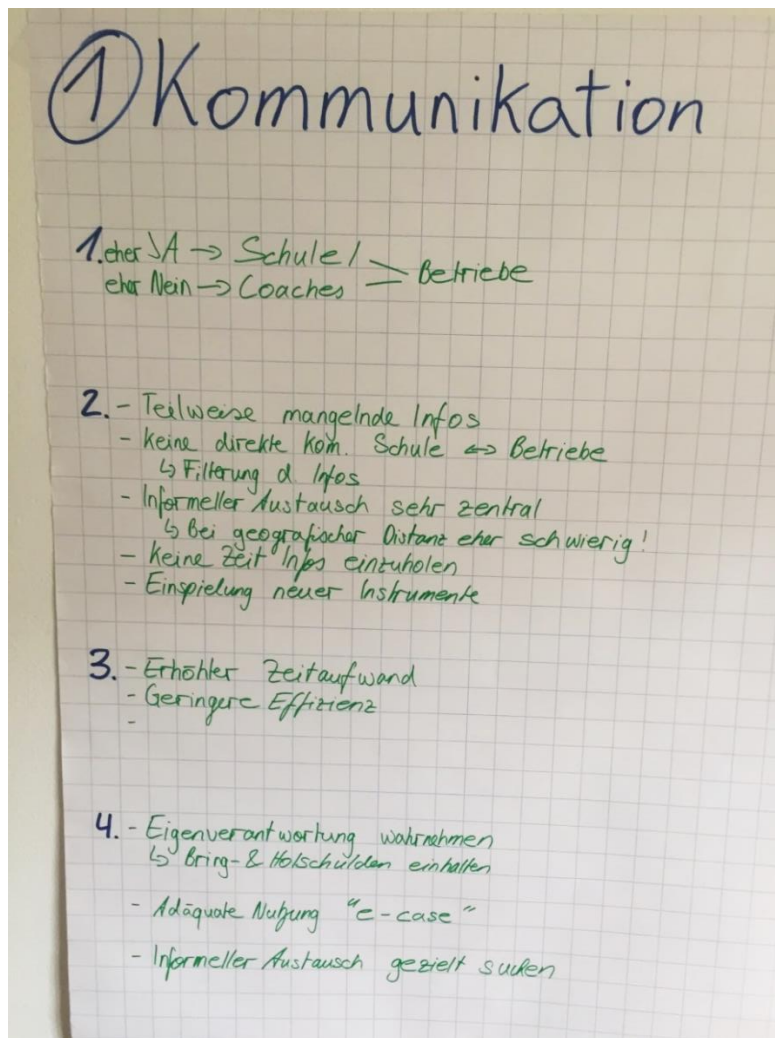 ① Kommunikation
1. eher JA → Schule / > Betriebe
eher Nein → Coaches
2. - Teilweise mangelnde Infos
- Keine direkte Kom. Schule ↔ Betriebe
↳ Filterung d. Infos
- Informeller Austausch sehr zentral
↳ Bei geografischer Distanz eher schwierig!
- Keine Zeit Infos einzuholen
- Einspielung neuer Instrumente
3. - Erhöhter Zeitaufwand
- Geringere Effizienz
-
4. - Eigenverantwortung wahrnehmen
↳ Bring- & Holschulden einhalten
- Adäquate Nutzung "e-case"
- Informeller Austausch gezielt suchen